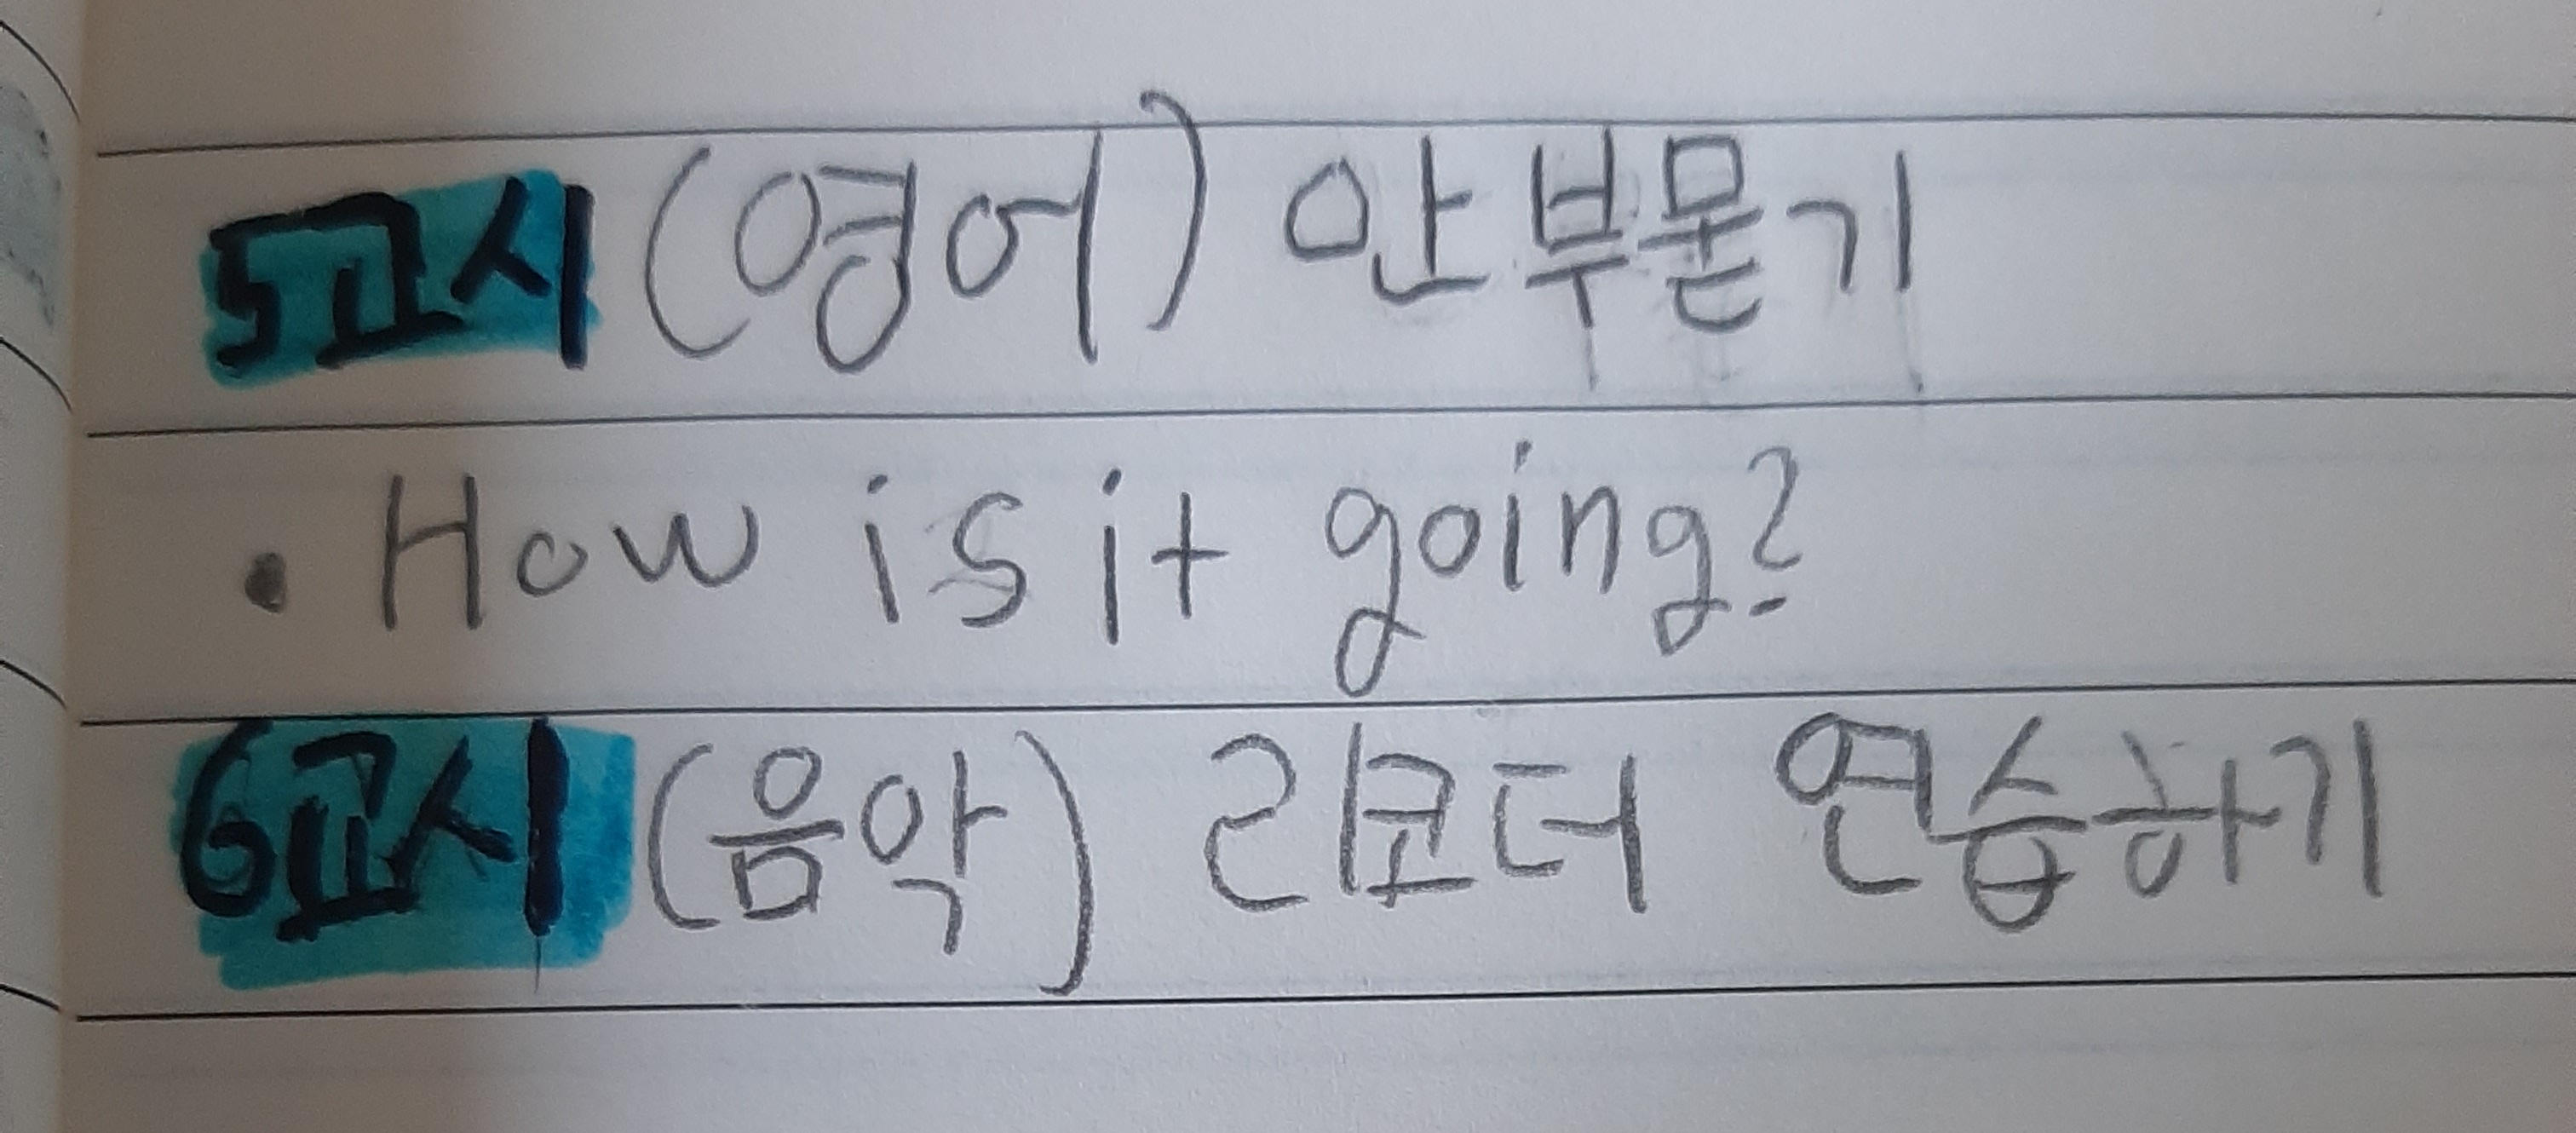 5교시 (영어) 안부묻기
• How is it going?
6교시 (음악) 리코더 연습하기